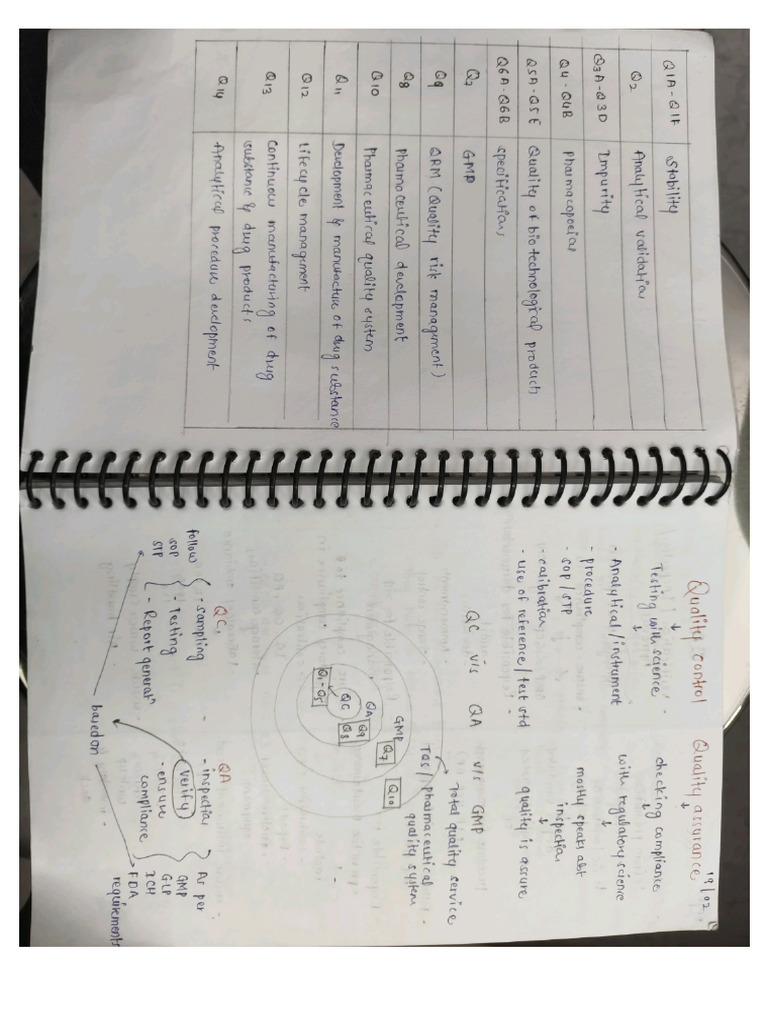 Q1A - Q1F Stability
Q2 Analytical validation
Q3A - Q3D Impurity
Q4 - Q4B Pharmacopoeias
Q5A - Q5E Quality of biotechnological products
Q6A - Q6B specifications
Q7 GMP
Q9 QRM (Quality risk management)
Q8 Pharmaceutical development
Q10 Pharmaceutical quality system
Q11 Development & manufacture of drug substance
Q12 Lifecycle management
Q13 Continuous manufacturing of drug
substance & drug products
Q14 Analytical procedure development
19/02
Quality control
↓
Testing with science
↓
- Analytical/instrument
- procedure
- SOP/STP
- calibration
- use of reference/test std
Quality assurance
↓
checking compliance
↓
with regulatory science
↓
mostly speaks abt
inspection
↓
quality is assure
QC v/s QA v/s GMP
Total quality service
TQS/pharmaceutical
quality system
GMP
QA
QC
Q1-Q5
Q8
Q9
Q7
Q10
QC
follow
SOP
STP
- sampling
- Testing
- Report generatn
QA
- inspection
verify
- ensure
compliance
As per
GMP
GLP
ICH
FDA
requirements
based on